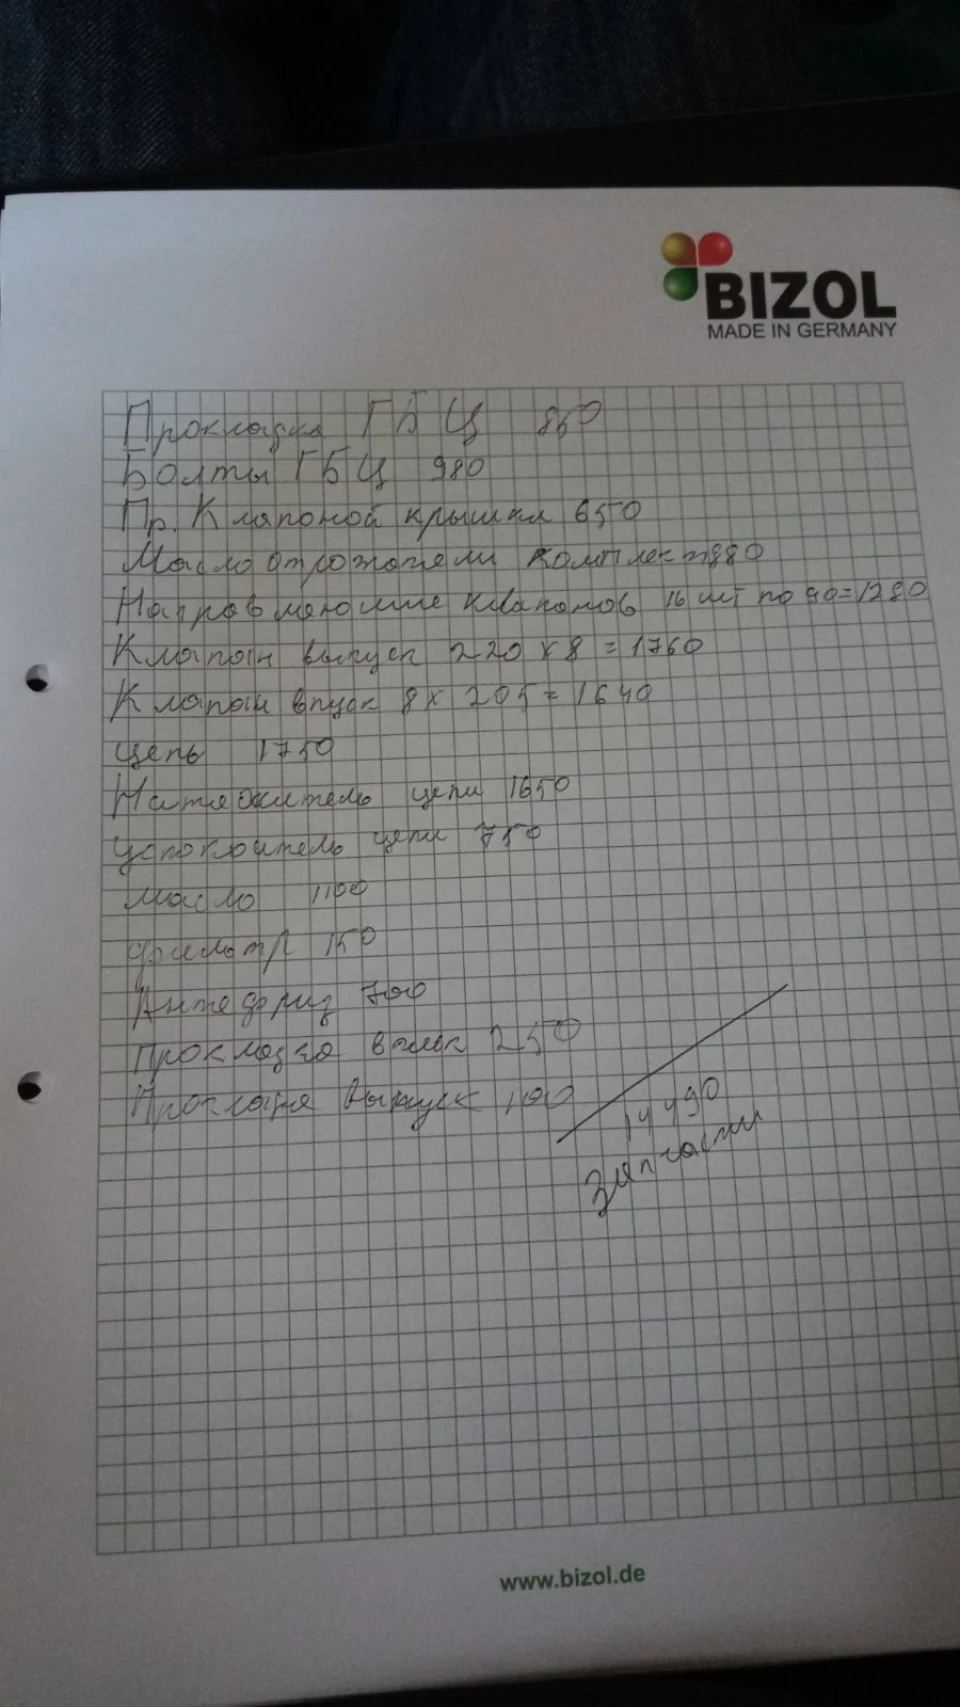 BIZOL
MADE IN GERMANY
Прокладка ГБЦ 850
Болты ГБЦ 980
Пр. Клапоной крышки 650
Маслоотрожатели Комплект 880
Напровляюшие клапонов 16 шт по 90=1280
Клапан выпуск 220 x 8 = 1760
Клапан впуск 8 x 205 = 1640
цепь 1750
Натяжитель цепи 1650
успокоитель цепи 750
масло 1100
фильтр 150
Антефриз 700
Прокладка впуск 250
Прокладка выпуск 1100
14490
Запчасти
www.bizol.de